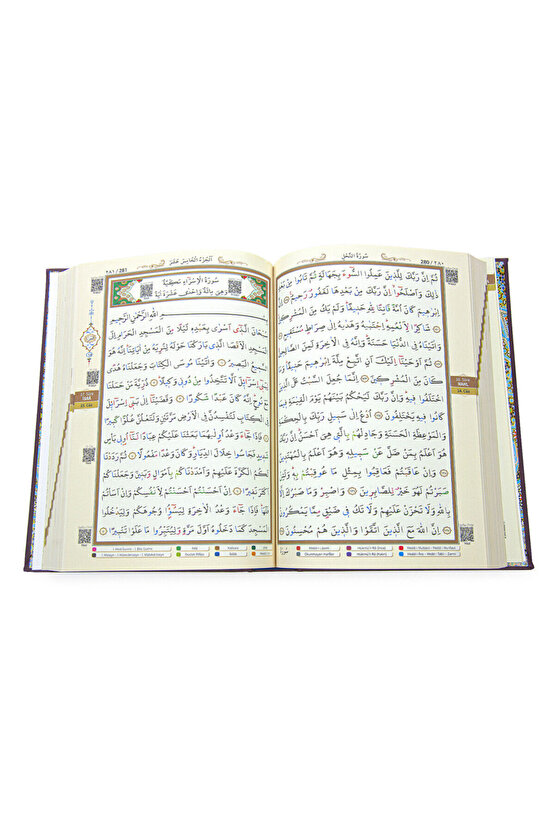 سورة النحل
٢٨٠ / 280
ثُمَّ اِنَّ رَبَّكَ لِلَّذ۪ينَ عَمِلُوا السُّٓوءَ بِجَهَالَةٍ ثُمَّ تَابُوا مِنْ بَعْدِ
ذٰلِكَ وَاَصْلَحُٓوا اِنَّ رَبَّكَ مِنْ بَعْدِهَا لَغَفُورٌ رَح۪يمٌ
اِنَّ اِبْرٰه۪يمَ كَانَ اُمَّةً قَانِتًا لِلّٰهِ حَن۪يفًا وَلَمْ يَكُ مِنَ الْمُشْرِك۪ينَ
شَاكِرًا لِاَنْعُمِهِ اِجْتَبٰيهُ وَهَدٰيهُ اِلٰى صِرَاطٍ مُسْتَق۪يمٍ
وَاٰتَيْنَاهُ فِي الدُّنْيَا حَسَنَةً وَاِنَّهُ فِي الْاٰخِرَةِ لَمِنَ الصَّالِح۪ينَ
ثُمَّ اَوْحَيْنَٓا اِلَيْكَ اَنِ اتَّبِعْ مِلَّةَ اِبْرٰه۪يمَ حَن۪يفًا وَمَا
كَانَ مِنَ الْمُشْرِك۪ينَ اِنَّمَا جُعِلَ السَّبْتُ عَلَى الَّذ۪ينَ
اخْتَلَفُوا ف۪يهِ وَاِنَّ رَبَّكَ لَيَحْكُمُ بَيْنَهُمْ يَوْمَ الْقِيٰمَةِ ف۪يمَا
كَانُوا ف۪يهِ يَخْتَلِفُونَ اُدْعُ اِلٰى سَب۪يلِ رَبِّكَ بِالْحِكْمَةِ
وَالْمَوْعِظَةِ الْحَسَنَةِ وَجَادِلْهُمْ بِالَّت۪ي هِيَ اَحْسَنُ اِنَّ رَبَّكَ
هُوَ اَعْلَمُ بِمَنْ ضَلَّ عَنْ سَب۪يلِه۪ وَهُوَ اَعْلَمُ بِالْمُهْتَد۪ينَ
وَاِنْ عَاقَبْتُمْ فَعَاقِبُوا بِمِثْلِ مَا عُوقِبْتُمْ بِه۪ وَلَئِنْ
صَبَرْتُمْ لَهُوَ خَيْرٌ لِلصَّابِر۪ينَ وَاصْبِرْ وَمَا صَبْرُكَ اِلَّا
بِاللّٰهِ وَلَا تَحْزَنْ عَلَيْهِمْ وَلَا تَكُ ف۪ي ضَيْقٍ مِمَّا يَمْكُرُونَ
اِنَّ اللّٰهَ مَعَ الَّذ۪ينَ اتَّقَوْا وَالَّذ۪ينَ هُمْ مُحْسِنُونَ
16. Sure
NAHL
14. Cüz
الجزء الخامس عشر
٢٨١ / 281
سورة الاسراء مكية
وهي مائة واحدى عشرة اية
بِسْمِ اللّٰهِ الرَّحْمٰنِ الرَّح۪يمِ
سُبْحَانَ الَّذ۪ٓي اَسْرٰى بِعَبْدِه۪ لَيْلًا مِنَ الْمَسْجِدِ الْحَرَامِ اِلَى
الْمَسْجِدِ الْاَقْصَا الَّذ۪ي بَارَكْنَا حَوْلَهُ لِنُرِيَهُ مِنْ اٰيَاتِنَا اِنَّهُ هُوَ
السَّم۪يعُ الْبَص۪يرُ وَاٰتَيْنَا مُوسَى الْكِتَابَ وَجَعَلْنَاهُ هُدًى
لِبَن۪ٓي اِسْرَٓائ۪لَ اَلَّا تَتَّخِذُوا مِنْ دُون۪ي وَك۪يلًا ذُرِّيَّةَ مَنْ حَمَلْنَا
مَعَ نُوحٍ اِنَّهُ كَانَ عَبْدًا شَكُورًا وَقَضَيْنَٓا اِلٰى بَن۪ٓي اِسْرَٓائ۪لَ
فِي الْكِتَابِ لَتُفْسِدُنَّ فِي الْاَرْضِ مَرَّتَيْنِ وَلَتَعْلُنَّ عُلُوًّا كَب۪يرًا
فَاِذَا جَٓاءَ وَعْدُ اُو۫لٰيهُمَا بَعَثْنَا عَلَيْكُمْ عِبَادًا لَنَٓا اُو۬ل۪ي بَاْسٍ
شَد۪يدٍ فَجَاسُوا خِلَالَ الدِّيَارِ وَكَانَ وَعْدًا مَفْعُولًا ثُمَّ رَدَدْنَا
لَكُمُ الْكَرَّةَ عَلَيْهِمْ وَاَمْدَدْنَاكُمْ بِاَمْوَالٍ وَبَن۪ينَ وَجَعَلْنَاكُمْ
اَكْثَرَ نَف۪يرًا اِنْ اَحْسَنْتُمْ اَحْسَنْتُمْ لِاَنْفُسِكُمْ وَاِنْ اَسَأْتُمْ
فَلَهَا فَاِذَا جَٓاءَ وَعْدُ الْاٰخِرَةِ لِيَسُٓؤُ۫ا وُجُوهَكُمْ وَلِيَدْخُلُوا
الْمَسْجِدَ كَمَا دَخَلُوهُ اَوَّلَ مَرَّةٍ وَلِيُتَبِّرُوا مَا عَلَوْا تَتْب۪يرًا
17. Sure
İSRÂ
15. Cüz